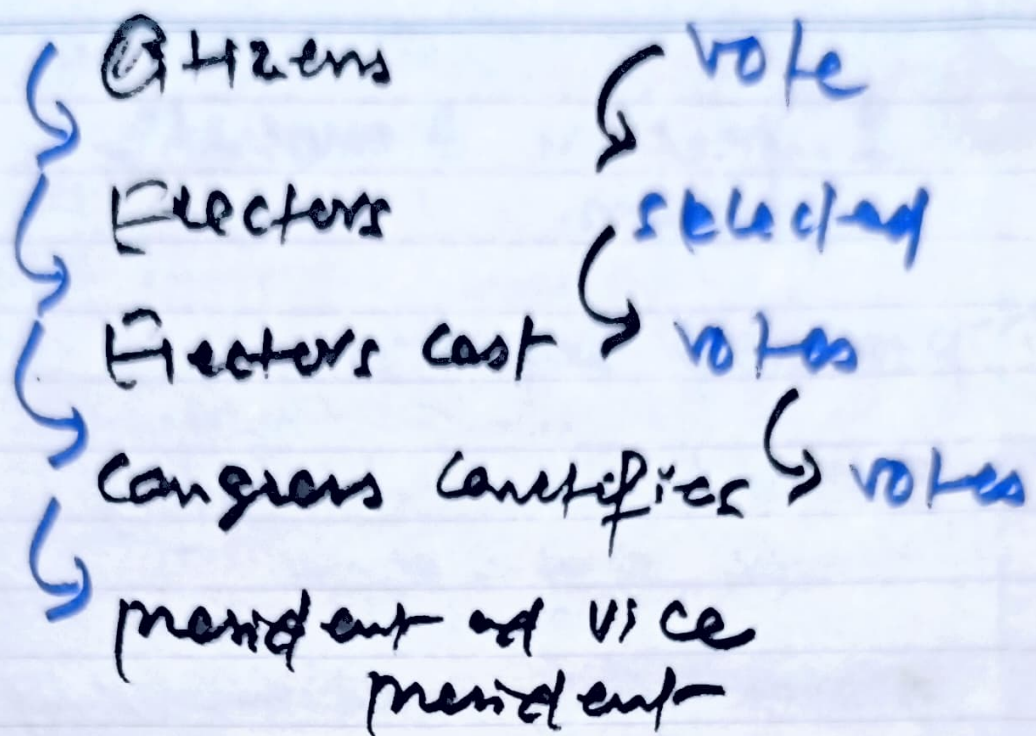 Citizens vote
Electors selected
Electors cast votes
Congress certifies votes
president and vice
president